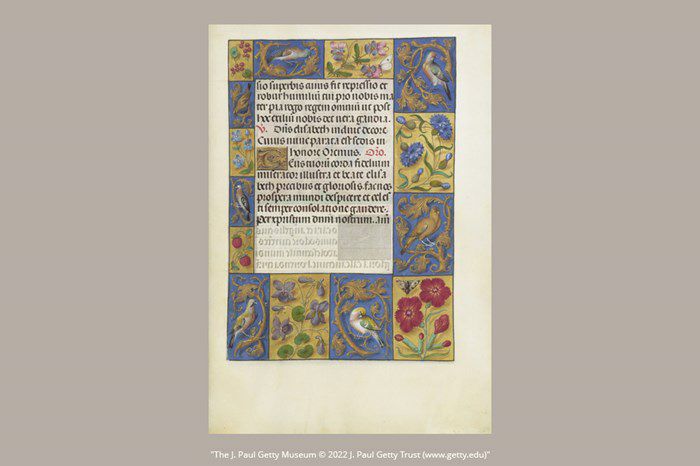 sio superbis fit repressio et
robur humiliū cui pio nobis ma
ter pia rogo regem omniū ut post
hoc exiliū nobis det vera gaudia.
V. elisabeth induit decore
Cuius nunc parata est sedis in
honore Oremus. Oro.
Deus tuorū corda fidelium
miserator illustra et beate elisa
beth precibus et gloriosis. fac nos
prospera mundi despicere et celes
ti semper consolatione gaudere.
Per xpistum dnm nostrum. am
"The J. Paul Getty Museum © 2022 J. Paul Getty Trust (www.getty.edu)"